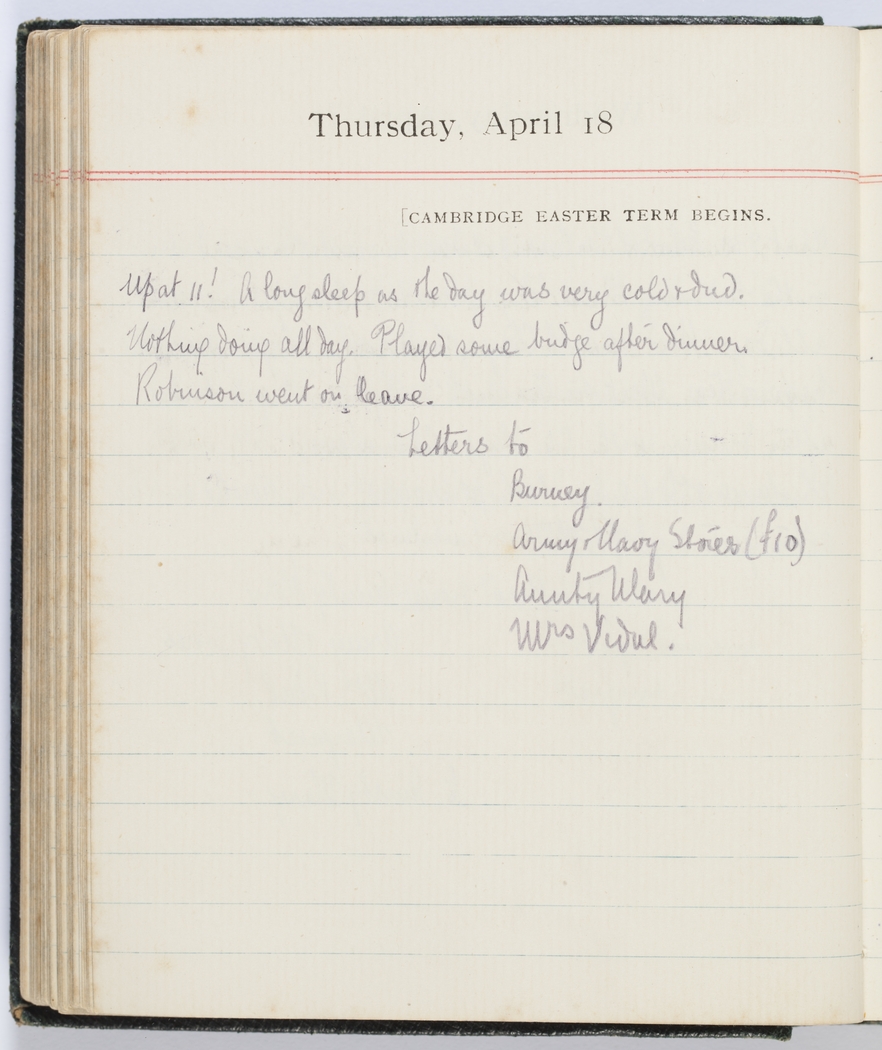 Thursday, April 18
[CAMBRIDGE EASTER TERM BEGINS.
Up at 11! A long sleep as the day was very cold & dud.
Nothing doing all day. Played some bridge after dinner.
Robinson went on leave.
Letters to
Burney.
Army & Navy Stores (£10)
Aunty Mary
Mrs Vidal.